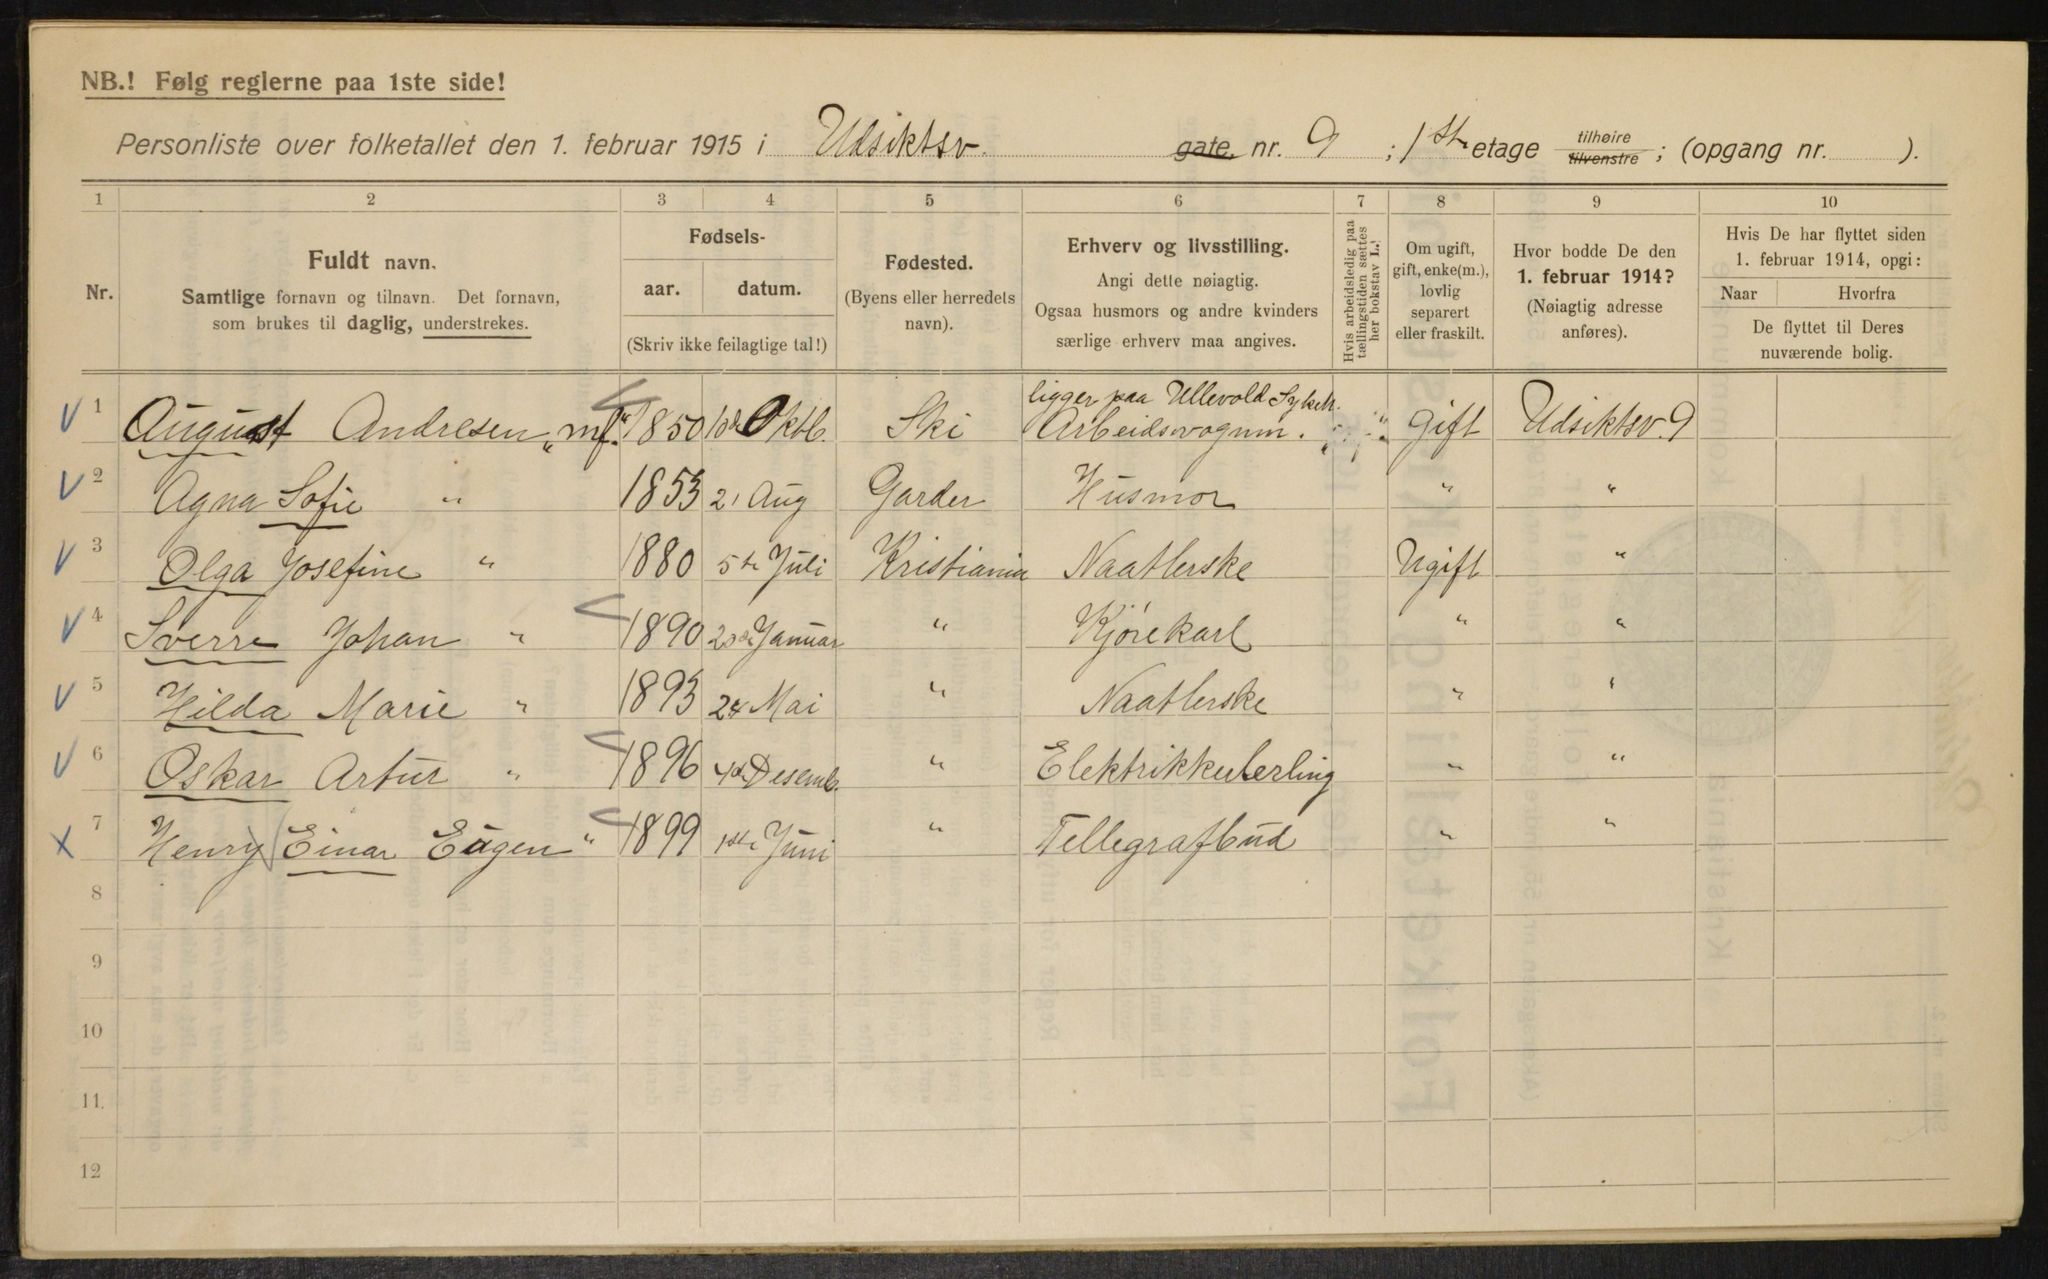 NB.! Følg reglerne paa 1ste side!
Personliste over folketallet den 1. februar 1915 i Udsiktsv. gate, nr. 9 ; 1ste etage tilhøire tilvenstre ; (opgang nr. ).
1 2 3 4 5 6 7 8 9 10
Nr.
Fuldt navn.
Samtlige fornavn og tilnavn. Det fornavn,
som brukes til daglig, understrekes.
Fødsels-
aar. datum.
(Skriv ikke feilagtige tal!)
Fødested.
(Byens eller herredets
navn).
Erhverv og livsstilling.
Angi dette nøiagtig.
Ogsaa husmors og andre kvinders
særlige erhverv maa angives.
Hvis arbeidsledig paa
tællingstiden sættes
her bokstav L.
Om ugift,
gift, enke(m.),
lovlig
separert
eller fraskilt.
Hvor bodde De den
1. februar 1914?
(Nøiagtig adresse
anføres).
Hvis De har flyttet siden
1. februar 1914, opgi:
Naar Hvorfra
De flyttet til Deres
nuværende bolig.
ligger paa Ullevold Sykeh.
1 August Andresen "mf." 1850 Oktb. Ski Arbeidsvognm. Gift Udsiktsv. 9
2 Agna Sofie " 1853 21 Aug Garder Husmor " "
3 Olga Josefine " 1880 5te Juli Kristiania Naatlerske Ugift "
4 Sverre Johan " 1890 20de Januar " Kjörekarl " "
5 Hilda Marie " 1893 24 Mai " Naatlerske " "
6 Oskar Artur " 1896 4de Desemb. " Elektrikkerlerling " "
7 Henry Einar Eugen " 1899 1ste Juni " Tellegrafbud " "
8
9
10
11
12